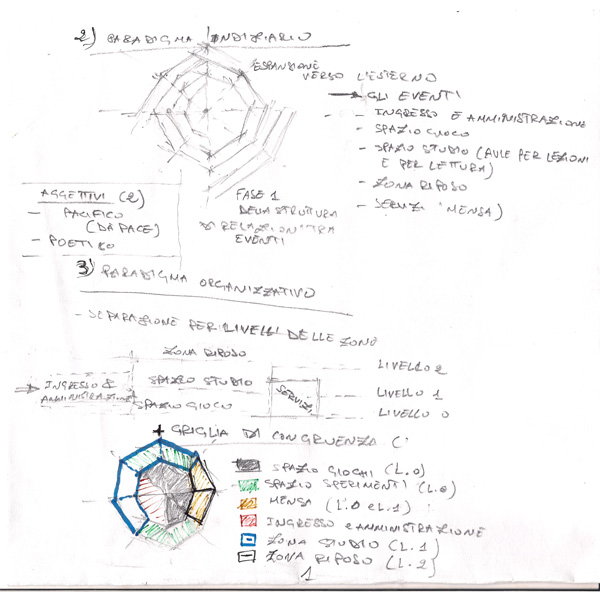 2) PARADIGMA INDIZIARIO
ESPANSIONE
VERSO L'ESTERNO
GLI EVENTI
- INGRESSO E AMMINISTRAZIONE
- SPAZIO GIOCO
- SPAZIO STUDIO (AULE PER LEZIONI
E PER LETTURA)
- ZONA RIPOSO
- SERVIZI (MENSA)
AGGETTIVI (2)
- PACIFICO
(DA PACE)
- POETICO
FASE 1
DELLA STRUTTURA
DI RELAZIONI TRA
EVENTI
3) PARADIGMA ORGANIZZATIVO
- SEPARAZIONE PER LIVELLI DELLE ZONE
ZONA RIPOSO
LIVELLO 2
INGRESSO &
AMMINISTRAZIONE
SPAZIO STUDIO
SERVIZI
LIVELLO 1
SPAZIO GIOCO
LIVELLO 0
+ GRIGLIA DI CONGRUENZA
SPAZIO GIOCHI (L.0)
SPAZIO SPERIMENTI (L.0)
MENSA (L.0 e L.1)
INGRESSO e AMMINISTRAZIONE
ZONA STUDIO (L.1)
ZONA RIPOSO (L.2)
1